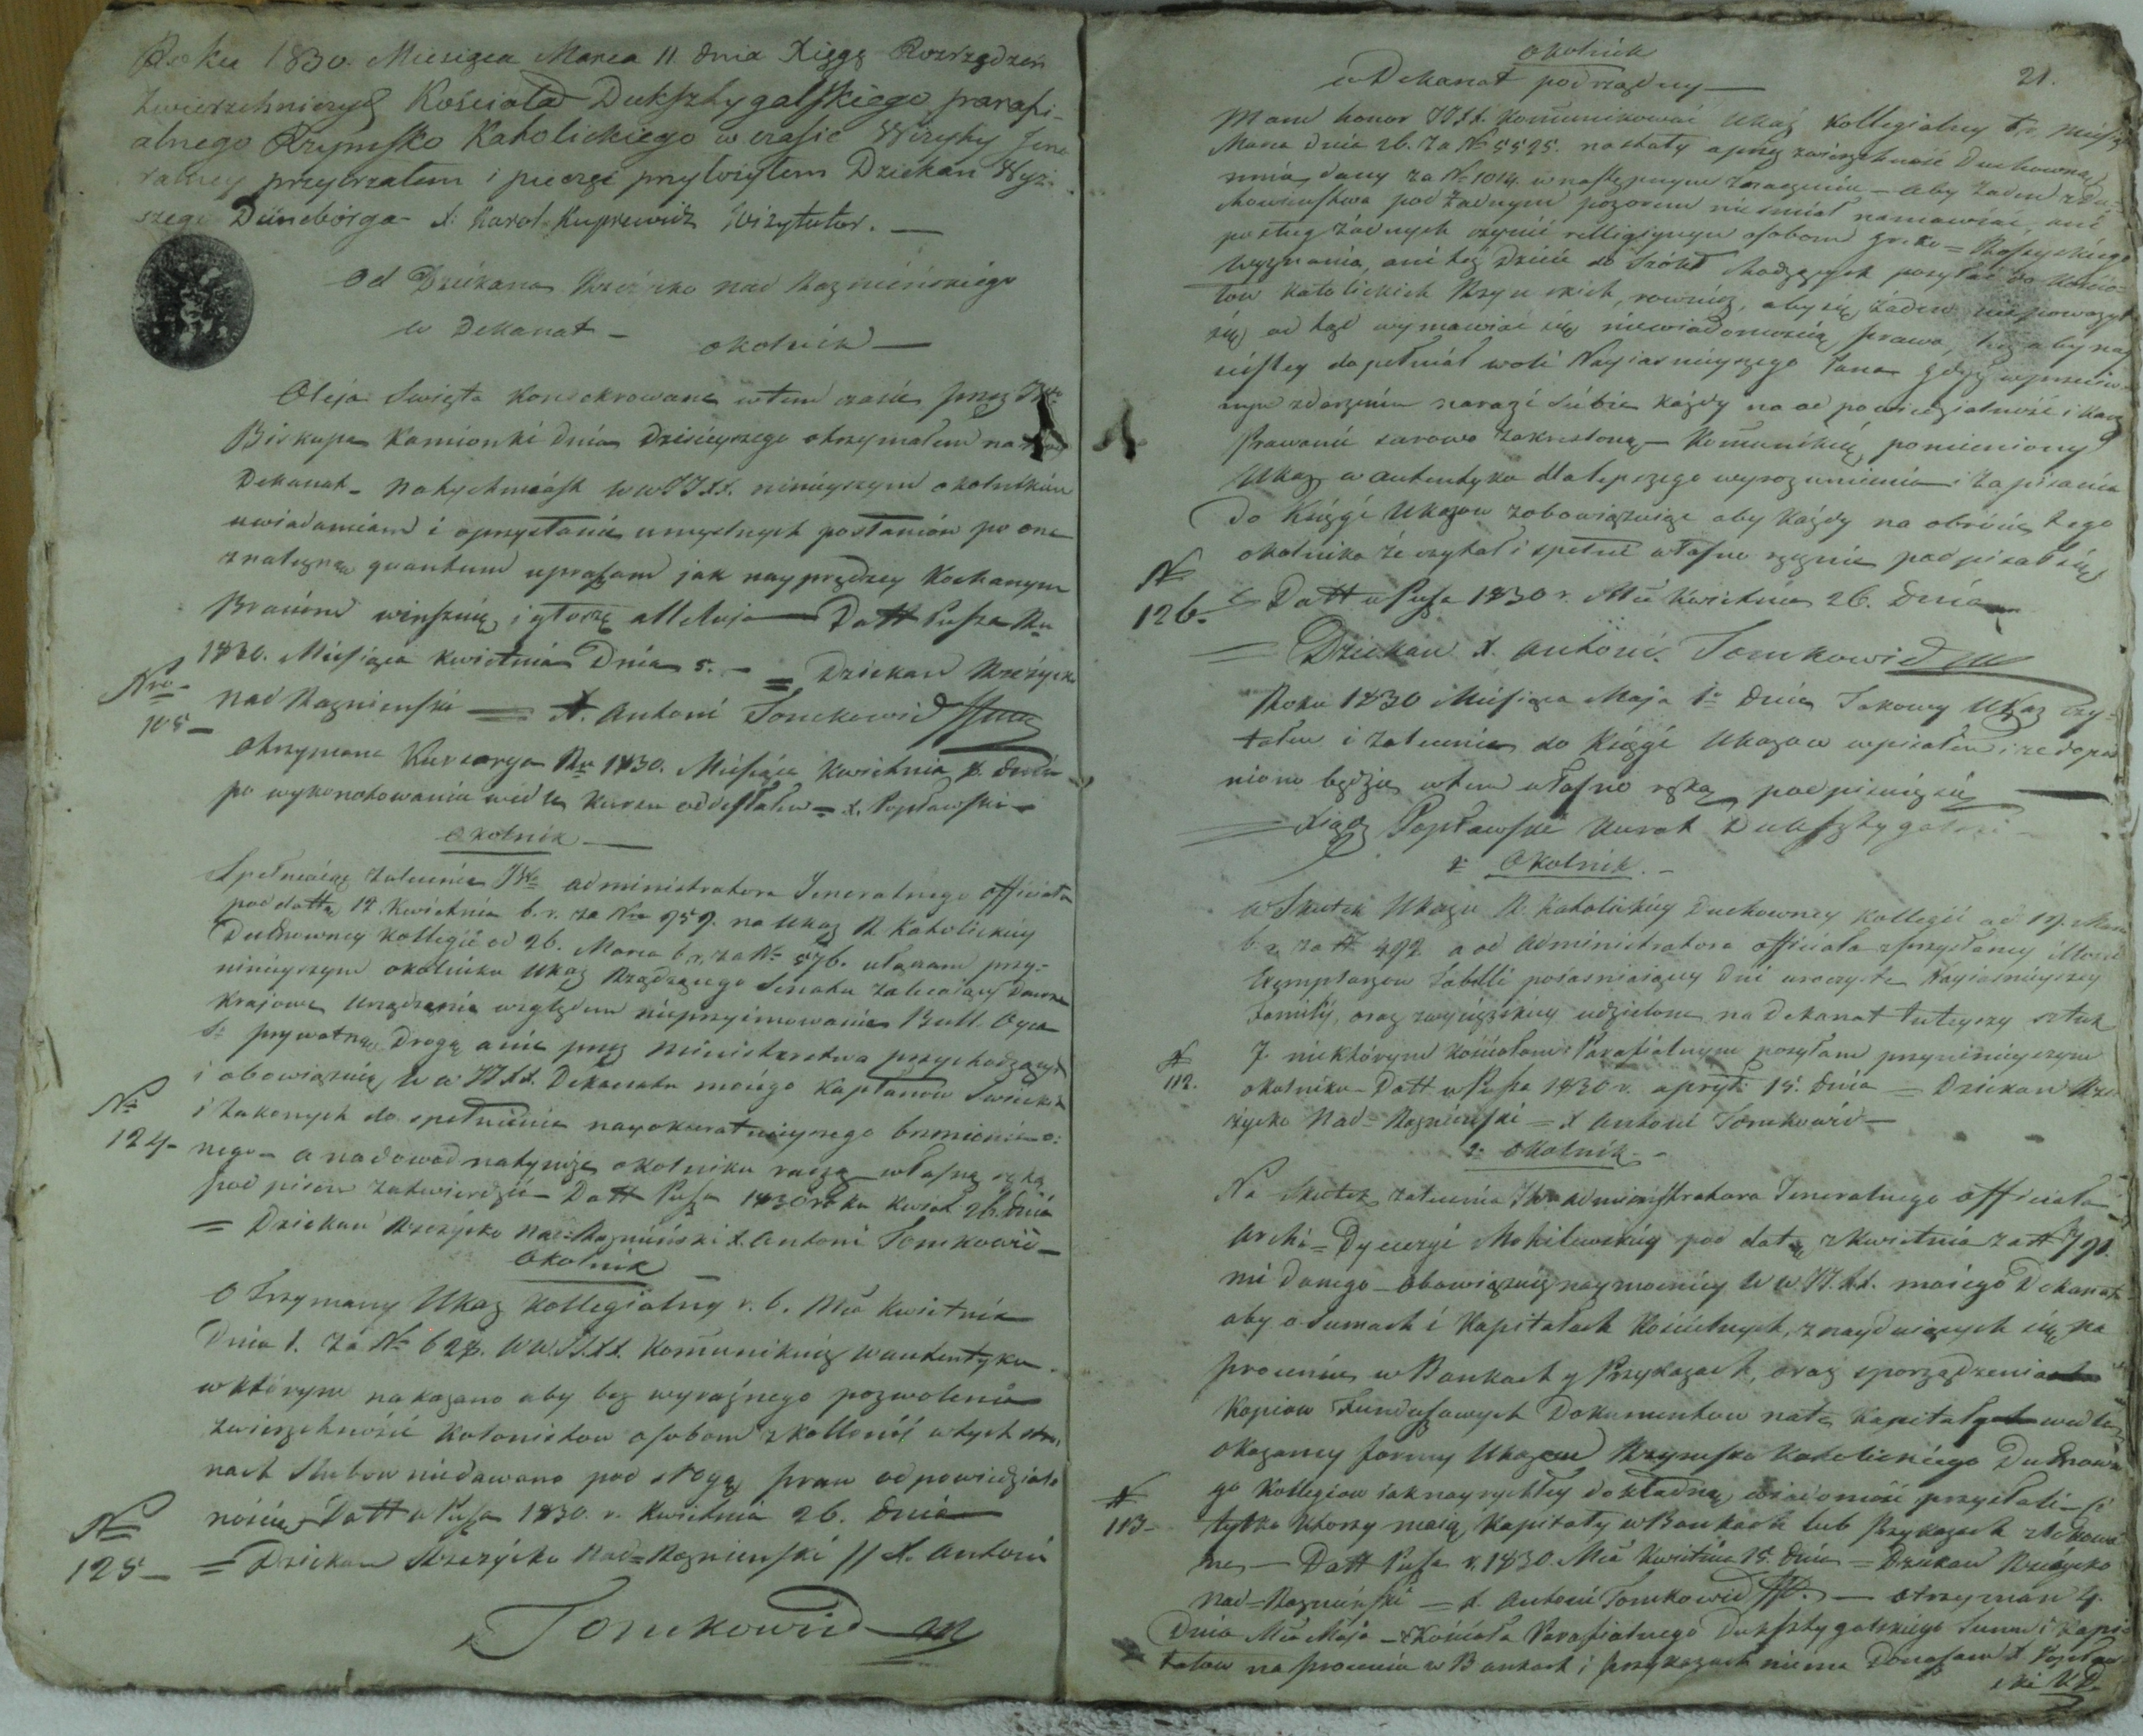 Roku 1830. Miesiąca Marca 11 dnia Xięgę Rozrządzeń
Zwierzchniczych Kościoła Duksztygalskiego parafi-
alnego Rzymsko Katolickiego w czasie Wizyty Jene
ralney przeyrzałem i pieczęć przyłożyłem Dziekan Wyż-
szego Dünebórga X. Karol Kuprewicz Wizytator. —
Od Dziekana Rzeżycko nad Raznieńskiego
w Dekanat —
okolnik —
Oleja Swięta konsekrowane w tem czasie przez JW
Biskupa Kamionki dnia dzisieyszego otrzymałem na
Dekanat — natychmiast WW JJXX. ninieyszym okolnikiem
uwiadamiam i o przysłanie umyslnych posłańców po one
z należną quantum upraszam jak nayprędzey Kochanym
Braciom winszuię i głoszę Alleluja — Datt Pusza Ru
1830. Miesiąca Kwietnia Dnia 5. — = Dziekan Rzeżycko
Nro
105 —
nad Raznienski = X. Antoni Tomkowid
Otrzymana Kursorya Ru 1830. Miesiąca Kwietnia 8. dnia
po wykonotowaniu wedle kursu odesłałem = X. Popławski —
Okolnik —
Spełniaiąc zalecenie JW administratora Jeneralnego officiała
pod dattą 17 Kwietnia b. r. za Nro 959. na Ukaz R. Katolickiey
Duchowney Kollegii od 26. Marca b. r. za No 576. ułączam przy-
ninieyszym okolniku Ukaz Rządzącego Senatu zalecaiący dawne
krajowe urządzenia względem nieprzyimowania Bull Oyca
S. prywatną drogą a nie przez Ministerstwa przychodzących
i obowiązuię WW JJXX. Dekanatu moiego Kapłanow Swieckich
No
124 —
i zakonnych do spełnienia nayakuratnieyszego brzmienia o-
nego — a na dowod na tymże okolniku raczą własną ręką
podpisem zatwierdzić — Datt Pusza 1830 roku Kwiet. 26. dnia
= Dziekan Rzeżycko Nad-Raznieński X. Antoni Tomkowid —
Okolnik
Otrzymany Ukaz Kollegialny r. b. Mca Kwietnia
Dnia 1. za No 628. WW. JJ.XX. Komunikuię w autentyku
w którym nakazano aby bez wyraźnego pozwolenia
zwierzchności kolonistow osobom z kollonii w tych stro-
nach slubow niedawano pod strogą praw odpowiedzial-
No
125 —
nością — Datt w Pusza 1830. r. Kwietnia 26. dnia
= Dziekan Rzeżycko Nad-Raznienski // X. Antoni
Tomkowid
okolnik
21.
w Dekanat podrządny —
Mam honor JJXX. komunikować Ukaz Kollegialny t. r. Miesiąca
Marca dnia 26. za No 5525. nastały a przez zwierzchność Duchowną
mnie dany za No 1014. w następnym znaczeniu — Aby żaden z Du-
chowieństwa pod żadnym pozorem niesmiał namawiać, ani
posług żadnych czynić religiynym osobom Greko-Rossyyskiego
wyznania, ani też dzieci do Szkół chodzących posyłać do Kościo-
łow Katolickich Rzymskich, rowniez, aby się żaden niepoważył
się odtąd wymawiać się niewiadomością prawa, lecz aby nay
ściśley dopełniał woli Nayiasnieyszego Pana gdyż w przeciw-
nym zdarzeniu narazi siebie każdy na odpowiedzialność i karę
Prawami surowo zakreśloną — Komunikuię pomieniony
Ukaz w autentyku dla lepszego wyrozumienia i zapisania
do Księgi Ukazow zobowiązuiąc aby każdy na obrócie tego
okolnika że czytał i spełni własno ręcznie podpisał się
No
126 —
Datt w Pusza 1830 r. Mca Kwietnia 26. dnia
= Dziekan X. Antoni Tomkowid
Roku 1830 Miesiąca Maja 1o dnia Takowy Ukaz czy-
tałem i zalecenie do Księgi Ukazow wpisałem i że dopeł
niono będzie w tem własno ręką podpisuię się —
= Xiądz Popławski Kurat Duksztygalski —
1. Okolnik. —
W Skutek Ukazu R. Katolickiey Duchowney Kollegii od 17. Marca
b. r. za N 492 a od administratora officiała z przysłaney ilości
Exemplarzow Tabelli poiasniaiącey dni uroczyste Nayiasnieyszey
Familij, oraz zwycięzkiey udzielone na dekanat tuteyszy sztuk
N
112.
7. niektórym kościołom Parafialnym posyłam przy ninieyszym
okolniku — Datt w Pusza 1830 r. april. 15. dnia = Dziekan Rze-
życko Nad-Raznieński = X Antoni Tomkowid —
2. Okolnik —
Na skutek zalecenia JW administratora Jeneralnego officiała
Archi-Dyecezyi Mohilewskiey pod datą 2 Kwietnia za N 791.
mi danego — obowiązuię naymocniey WW. JJ.XX. moiego Dekanat
aby o Sumach i Kapitałach Kościelnych, znayduiących się na
procencie w Bankach y Przykazach, oraz sporządzenia
Kopiow Funduszowych Dokumentow na te Kapitały wedle
okazaney formy Ukazem Rzymsko Katolickiego Duchowne
go Kollegium iak nayrychley dokładną wiadomość przysłali — Ci
N
113 —
tylko ktorzy maią Kapitały w Bankach lub Przykazach
— Datt Pusza r. 1830. Mca Kwietnia 15. dnia = Dziekan Rzeżycko
Nad-Raznieński = X. Antoni Tomkowid — Otrzyman 4.
Dnia Mca Maja — Kościoła Parafialnego Duksztygalskiego Summ i kapi
tałow na procencie w Bankach i przykazach niema Donoszem X Popław
ski K. D.